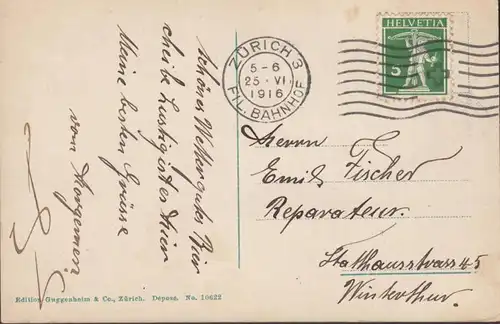 Schönes Wetter gutes Bier
Lustig ist es hier
Meine besten Grüsse
von
ZÜRICH 3
5-6
25·VI
1916
FIL. BAHNHOF
HELVETIA
5
Herrn
Emil Fischer
Reparateur.
Stadthausstrass 45
Winterthur.
Edition Guggenheim & Co., Zürich. Deposs. No. 10622